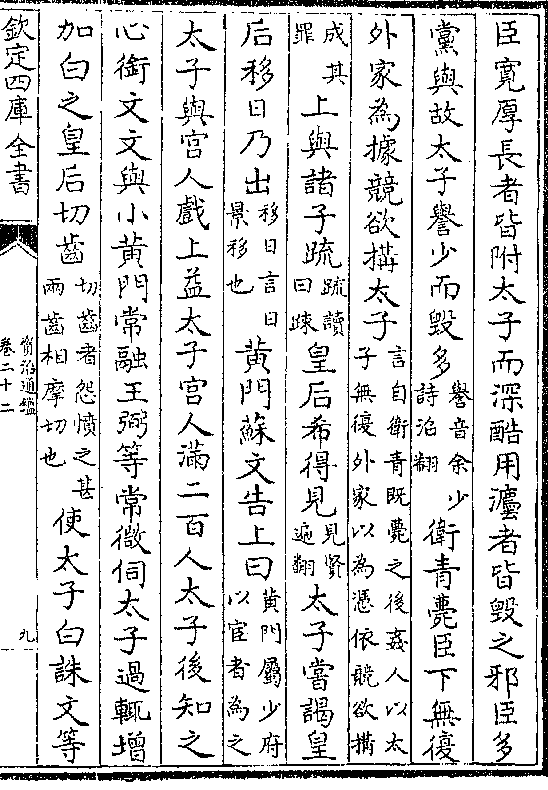 臣寛厚長者皆附太子而深酷用灋者皆毁之邪臣多
黨與故太子譽少而毁多譽音余少詩沼翻衛青薨臣下無復
外家為據競欲搆太子言自衛青既薨之後姦人以太子無復外家以為憑依競欲搆
成其罪上與諸子疏疏讀曰踈皇后希得見見賢遍翻太子嘗謁皇
后移日乃出移日言日景移也黄門蘇文告上曰黄門屬少府以宦者為之
太子與宮人戲上益太子宮人滿二百人太子後知之
心銜文文與小黄門常融王弼等常微伺太子過輒增
加白之皇后切齒切齒者怨憤之甚兩齒相摩切也使太子白誅文等
欽定四庫全書
資治通鑑
卷二十二
九